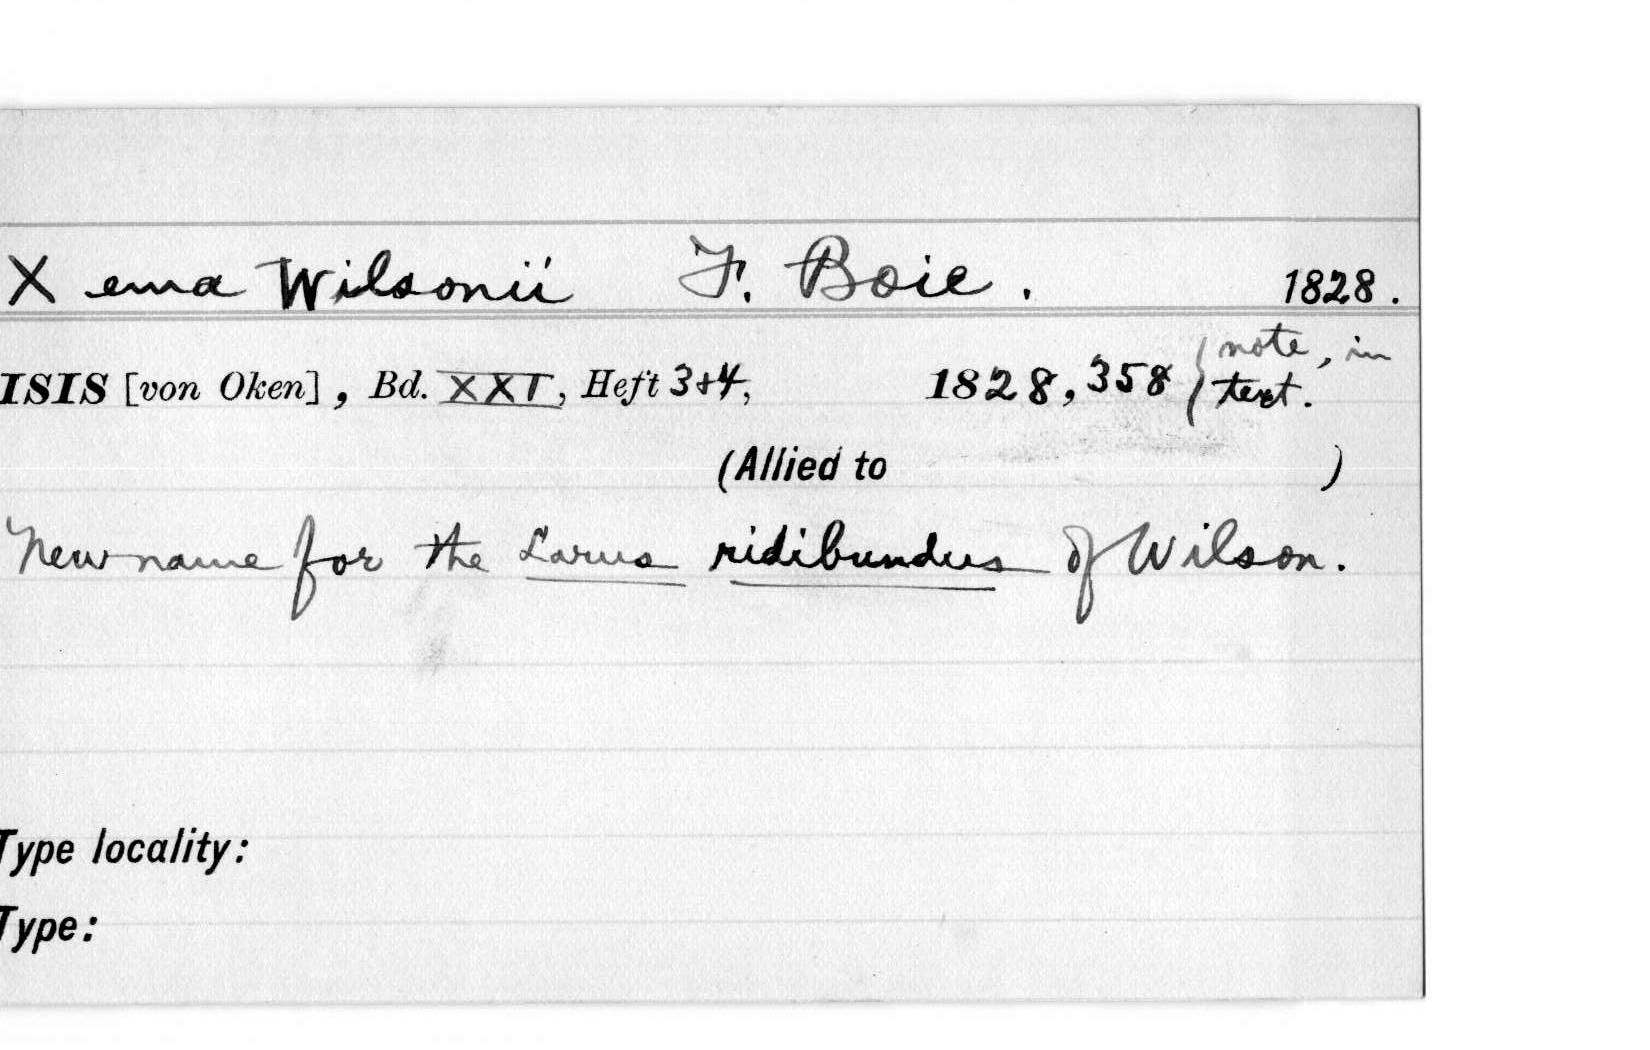 Xema Wilsonii F. Boie. 1828.
ISIS [von Oken], Bd. XXI, Heft 3+4, 1828, 358 { note, in text.
(Allied to )
New name for the Larus ridibundus of Wilson.
Type locality:
Type: